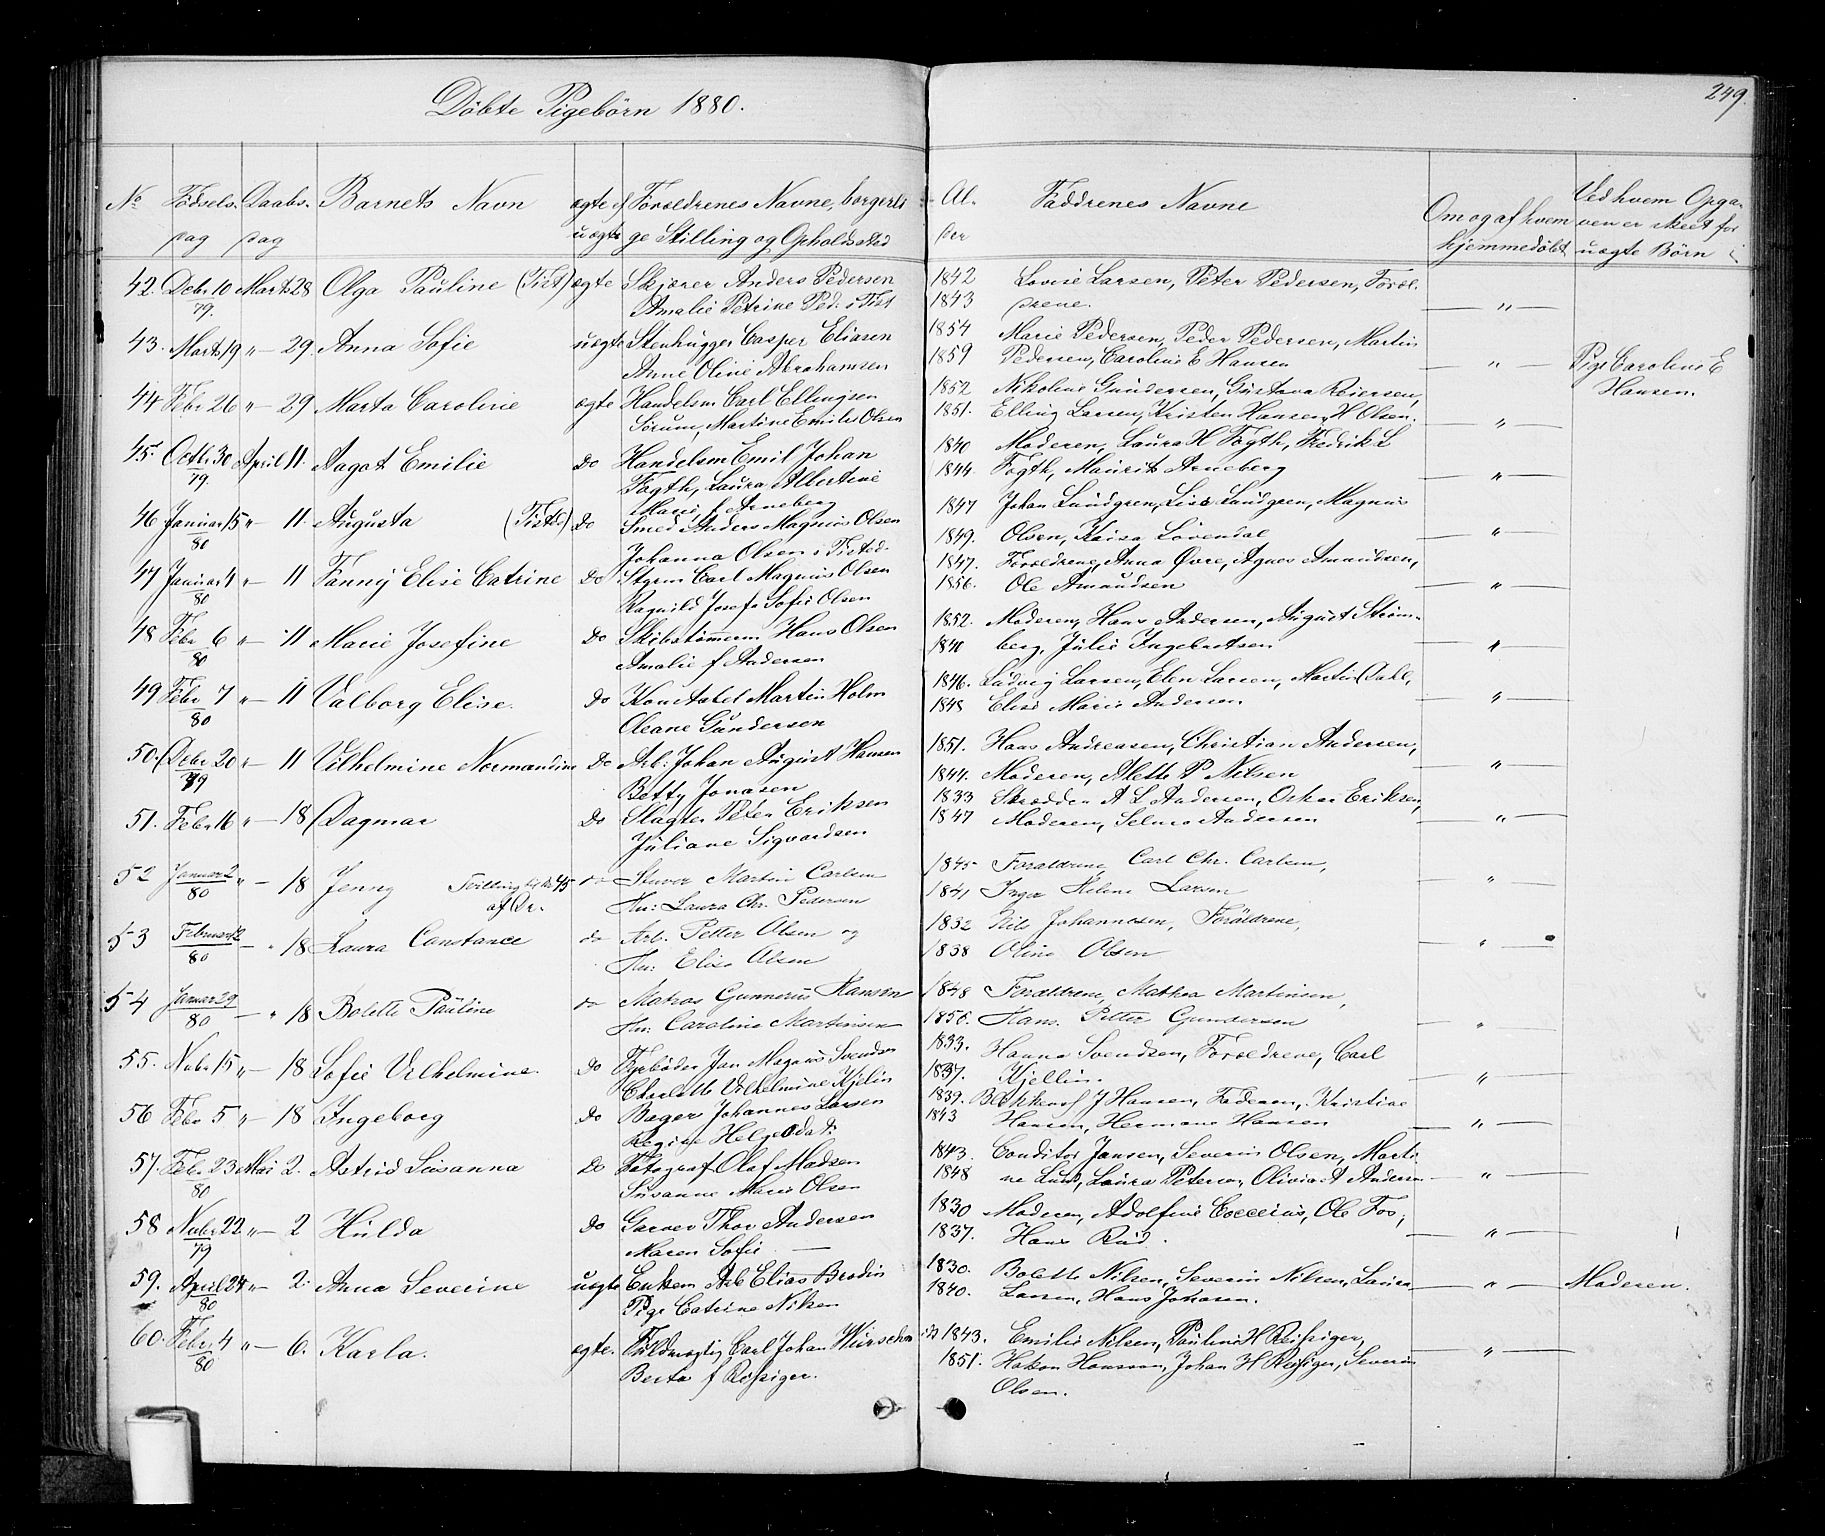 249.
Döbte Pigebörn 1880.
No Födsels- Daabs- Barnets Navn ægte ell Forældrenes Navne, borgerli Al- Faddrenes Navne Om og af hvem Ved hvem Opga-
dag dag uægte ge Stilling og Opholdssted der hjemmedöbt ven er skeet for
uægte Börn
42. Debr 10 Marts 28 Olga Pauline (Tist) ægte Skjærer Anders Pedersen 1842 Lovise Larsen, Peter Pedersen, Foræl-
79. Amalie Petrine Ped: i Tist 1843 drene. — " —
43. Marts 19 " — 29. Anna Sofie uægte Stenhugger Casper Eliasen 1854 Marie Pedersen, Peder Pedersen, Martin
Anne Olivie Abrahamsen 1859 Pedersen, Caroline E Hansen — " — Pige Caroline E
Hansen.
44 Febr 26 " — 29 Marta Caroline ægte Handelsm Carl Ellingsen 1852 Nikoline Gundersen, Gustava Reiersen,
Sörum, Martine Emilie Olsen 1851. Elling Larsen, Kristen Hansen, H Olsen. — " —
45 Octbr 30 April 11. Aagot Emilie Do Handelsm Emil Johan 1840 Moderen, Laura H Fogth, Fredrik L
79. Fogth, Laura Albertine 1844. Fogth, Maurits Arneberg — " —
Marie f Arneberg
46 Januar 15 " — 11. Augusta (Tisted) Do Smed Anders Magnus Olsen 1847 Johan Lundgren, Lise Lundgren, Magnus
80 Johanna Olsen i Tisted. 1849. Olsen, Kaisa Lövendal — " —
47 Januar 4 " — 11 Fanny Elise Catrine Do Styrm Carl Magnus Olsen 1847. Forældrene, Anna Övre, Agnes Amundsen,
80 Ragnild Josefa Sofie Olsen 1856. Ole Amundsen — " —
48 Febr 6 " — 11 Marie Josefine Do Skibstömmerm Hans Olsen 1852. Moderen, Hans Andersen, August Ström-
80 Amalie f Andersen 1840 berg, Julie Ingebretsen — " —
49 Febr 7 " — 11 Valborg Elise. Do Konstabel Martin Holm 1846. Ludvig Larsen, Elen Larsen, Martin Dahl,
80 Oleane Gundersen 1848 Elise Marie Andersen — " —
50. Debr 20 " — 11 Vilhelmine Normandine Do Arb: Johan August Hansen 1851. Hans Andreasen, Christian Andersen,
79 Betty Jonasen 1844. Moderen, Alette P Nilsen — " —
51. Febr 16 " — 18 Dagmar Do Slagter Peter Eriksen 1833 Skrædder A L Andersen, Oskar Eriksen,
Juliane Sigvardsen 1847 Moderen, Selma Andersen — " —
52 Januar 2 " — 18 Jenny Tvilling til No 45 do Stuver Martin Carlsen 1845 Forældrene, Carl Chr. Carlsen,
80 af Dr. Hu: Laura Chr. Pedersen 1841 Inger Helene Larsen "
53 Februar 12 — " 18 Laura Constance do Arb. Petter Olsen og 1832 Nils Johannesen, Forældrene,
80 Hu: Elise Olsen 1838 Oline Olsen — " —
54 Januar 29 — " 18 Bolette Pauline do Matros Gunnerius Hansen 1848 Forældrene, Mathea Martinsen,
80 Hu: Caroline Martinsen 1856. Hans Petter Gundersen — " —
55. Nobr 15 " — 18 Sofie Vilhelmine. Do Fyrböder Jan Magnus Svendsen 1833. Hanna Svendsen, Forældrene, Carl
Charlotte Vilhelmine Kjelin 1837. Kjellin. — " —
56 Febr 5 " — 18 Ingeborg Do Bager Johannes Larsen 1839. J Hansen, Faderen, Kristine
Regine Helgesdat: 1843 Hansen, Hermane Hansen — " —
57. Febr 23 Mai 2. Astrid Susanna Do Fotograf Olaf Madsen 1843. Conditor Jansen, Severin Olsen, Marti
80 Susanne Marie Olsen 1848 ne Lund, Laura Petersen, Olivia A Andersen — " —
58 Nobr 22 " — 2 Hulda Do Garver Thor Andersen 1830 Moderen, Adolfine Coccius, Ole Fos,
79 Maren Sofie — 1837. Hans Rud. — " —
59. April 24 " — 2. Anna Severine uægte Enkem Arb Elias Brodin 1830. Bolette Nilsen, Severin Nilsen, Laura
80 Pige Catrine Nilsen 1840. Larsen, Hans Johasen. — " — Moderen.
60. Febr 4 " — 6. Karla. ægte. Fuldmægtig Carl Johan Wirschn 1843. Emilie Nilsen, Pauline H Reissiger,
80 Berta f Reissiger. 1851. Hakon Hansson, Johan H Reissiger, Severin — " —
Olsen.